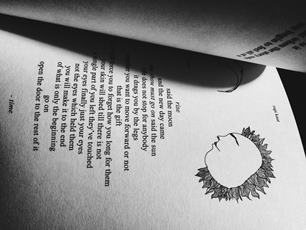 rise
said the moon
and the new day came
the show must go on said the sun
life does not stop for anybody
it drags you by the legs
whether you want to move forward or not
that is the gift
you to forget how you long for them
your skin will shed till there is not
single part of you left they've touched
your eyes finally just your eyes
not the eyes which held them
you will make it to the end
of what is only the beginning
go on
open the door to the rest of it
- time
rupi kaur